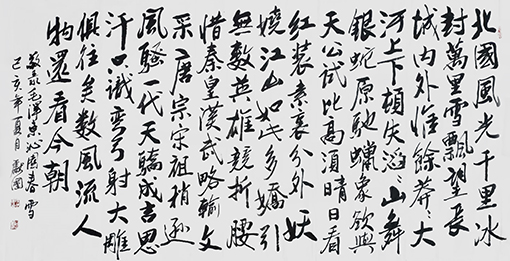 北國風光千里冰
封萬里雪飄望長
城内外惟餘莽々大
河上下頓失滔々山舞
銀蛇原馳蠟象欲與
天公試比高須晴日看
紅裝素裹分外妖
嬈江山如此多嬌引
無數英雄競折腰
惜秦皇漢武略輸文
采唐宗宋祖稍遜
風騷一代天驕成吉思
汗只識彎弓射大雕
俱往矣數風流人
物還看今朝
敬录毛澤東沁園春雪
己亥年夏月